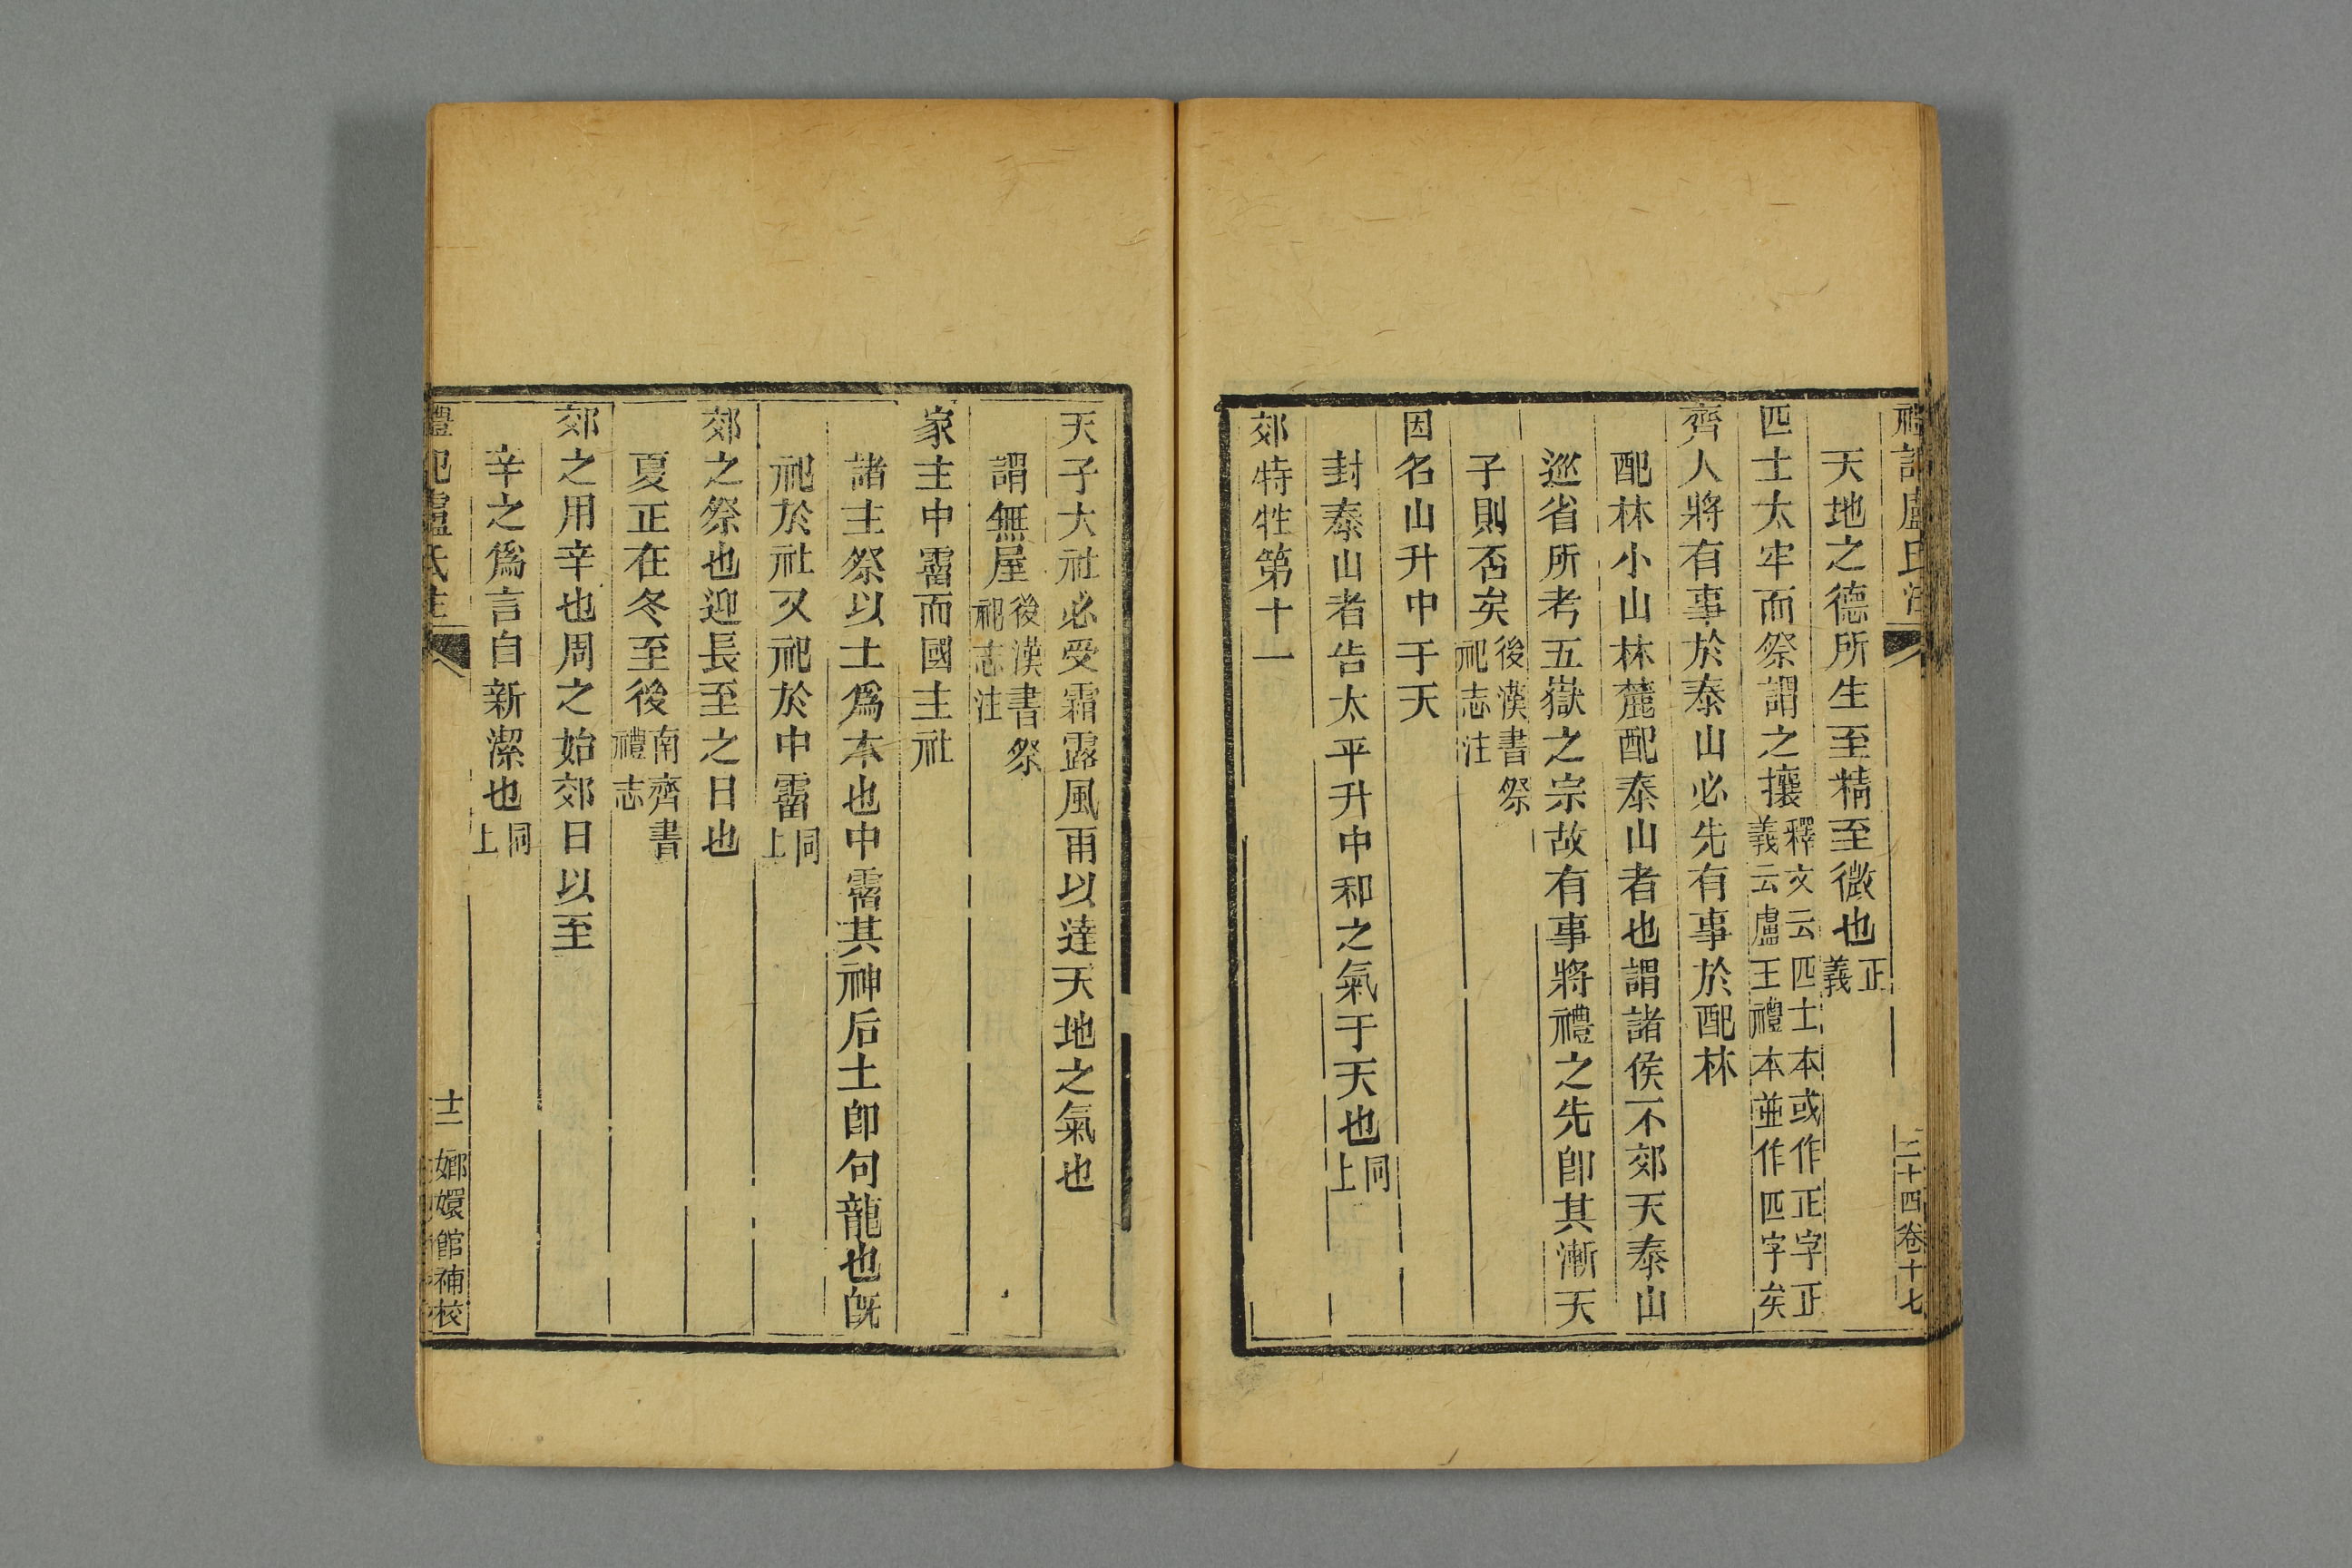 禮記盧氏注 二十四卷十七
天地之德所生至精至微也正義
匹士太牢而祭謂之攘釋文云匹士本或作正字正義云盧王禮本並作匹字矣
齊人將有事於泰山必先有事於配林
配林小山林麓配泰山者也謂諸侯不郊天泰山
巡省所考五嶽之宗故有事將禮之先卽其漸天
子則否矣後漢書祭祀志注
因名山升中于天
封泰山者告太平升中和之氣于天也同上
郊特牲第十一
天子大社必受霜露風雨以達天地之氣也
謂無屋後漢書祭祀志注
家主中霤而國主社
諸主祭以土爲本也中霤其神后土卽句龍也旣
祀於社又祀於中霤同上
郊之祭也迎長至之日也
夏正在冬至後南齊書禮志
郊之用辛也周之始郊日以至
辛之爲言自新潔也同上
禮記盧氏注 十二 嫏嬛館補校